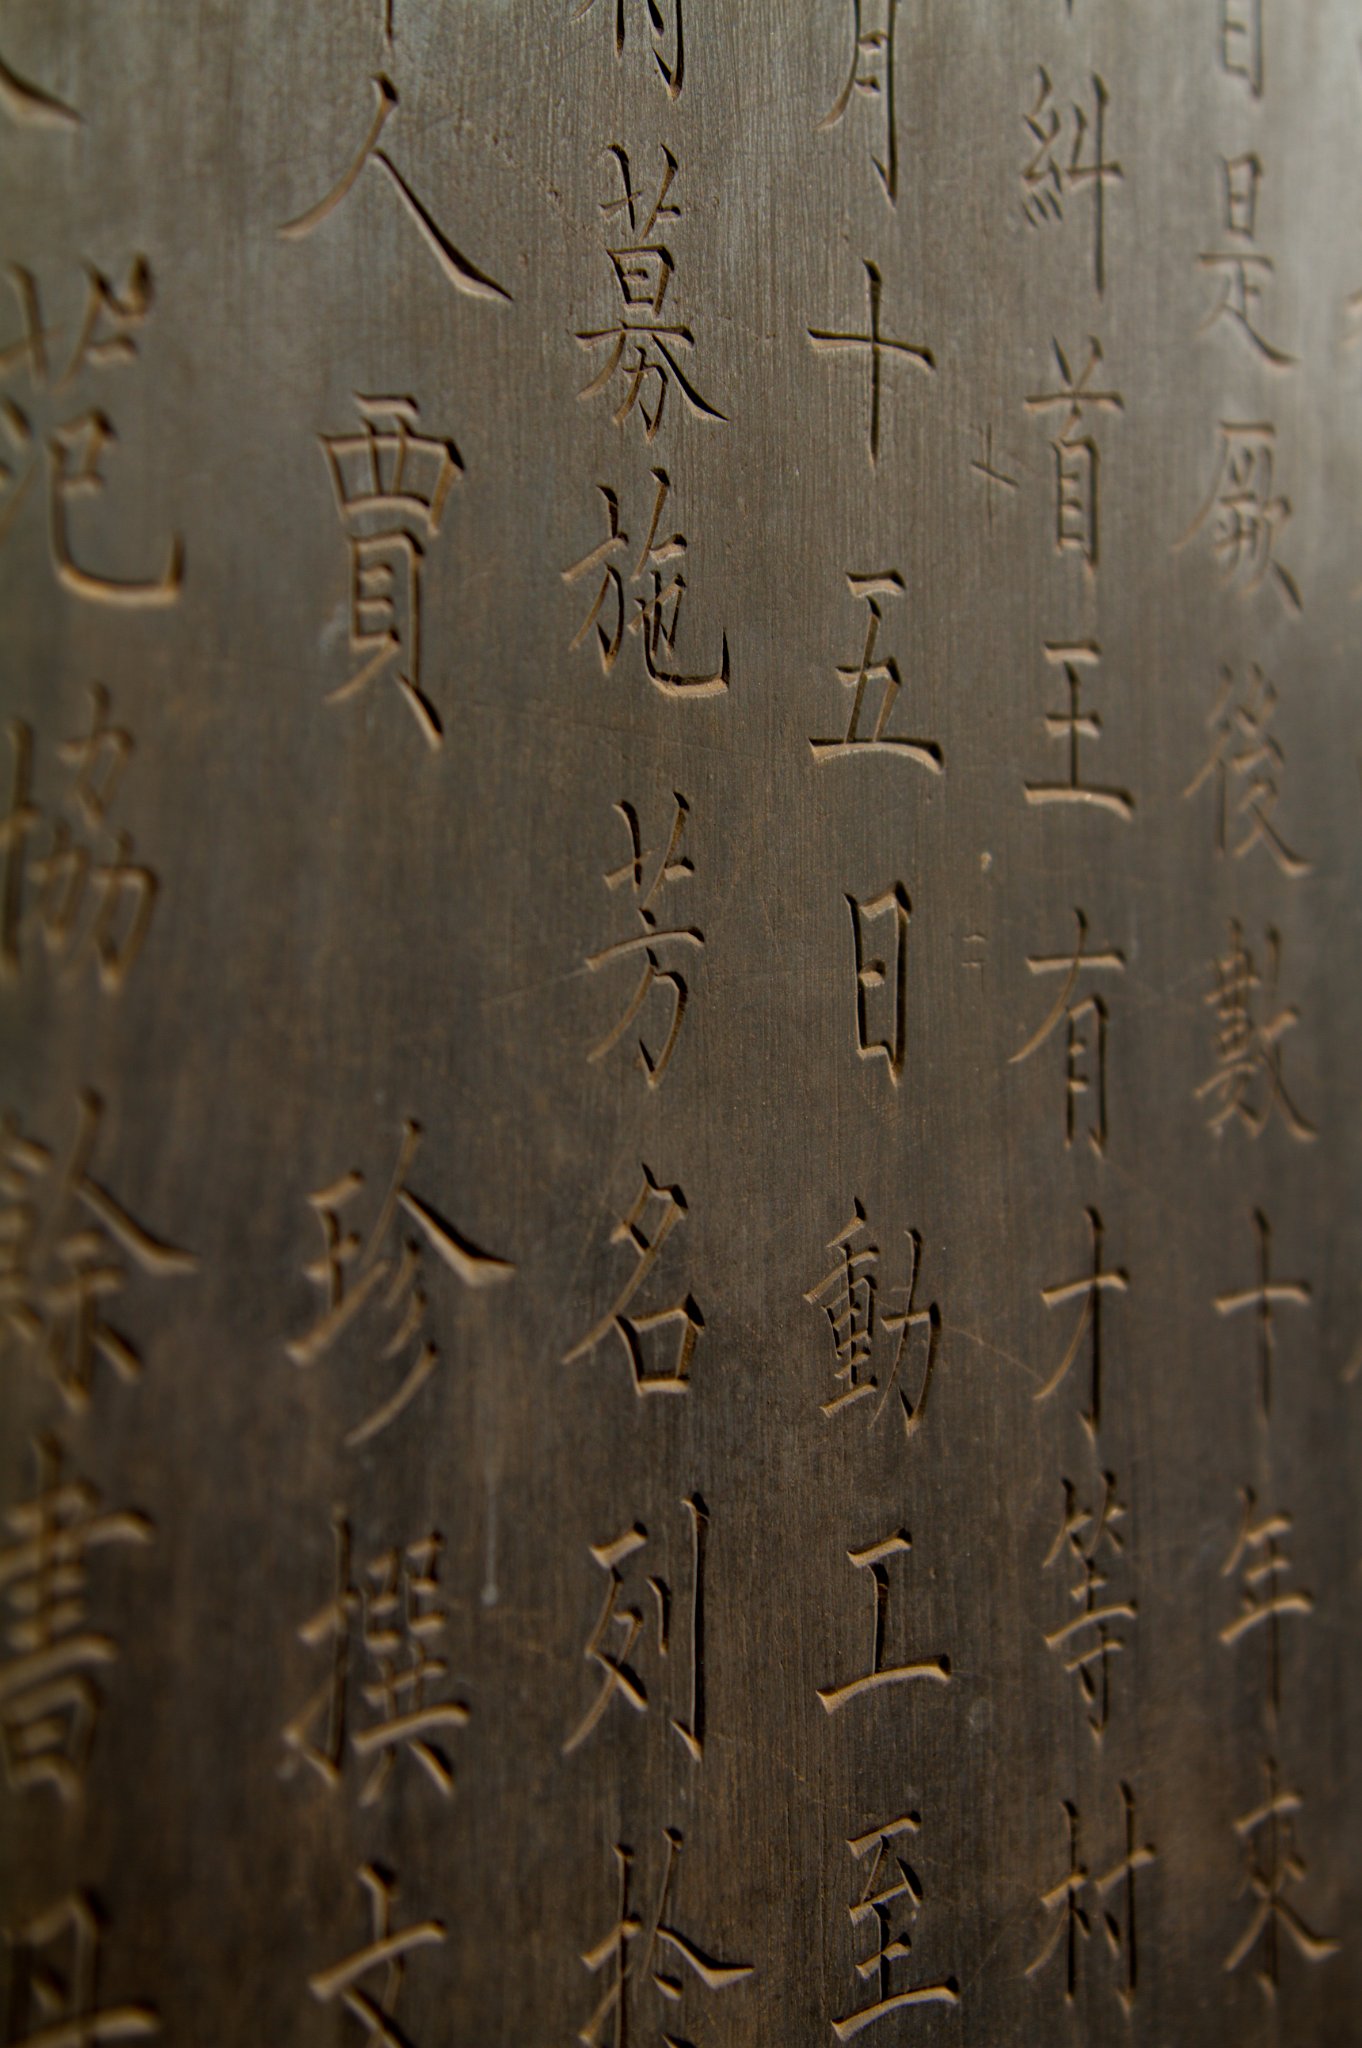 是厥後數十年來
糾首王有才等村
月十五日動工至
募施芳名列於
人賈珍撰文
范協餘書丹